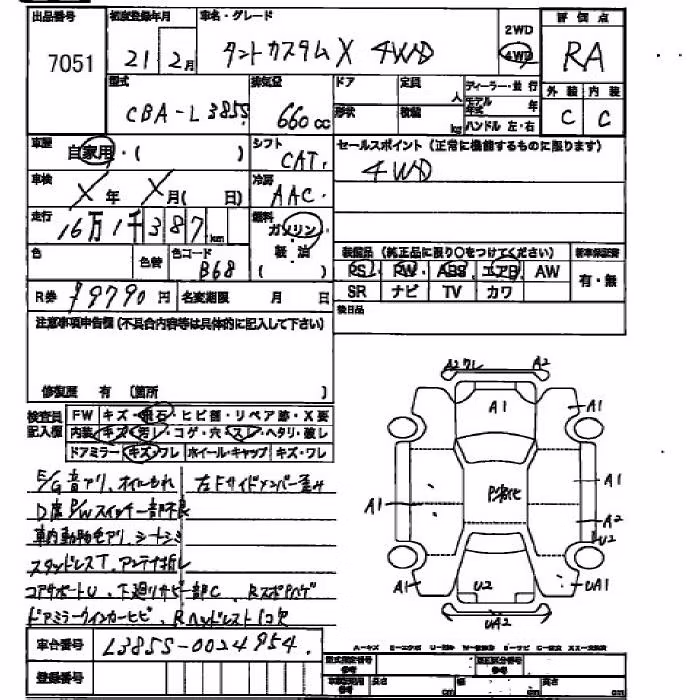 出品番号 初度登録年月 車名・グレード 2WD 評価点
7051 21年2月 タントカスタム X 4WD 4WD RA
型式 排気量 ドア 定員 人 ディーラー・並行 外装 内装
CBA-L385S 660cc 形状 積載 kg モデル年式 年 C C
ハンドル 左・右
車歴 自家用・( ) シフト CAT セールスポイント (正常に機能するものに限ります)
車検 X年 X月( 日) 冷房 AAC 4WD
走行 16万1千387km 燃料 ガソリン
軽油
( )
色 色替 色コード B68 装備品 (純正品に限り○をつけてください) 新車保証書
PS・PW・ABS・エアB・AW 有・無
R券 ¥9790円 名変期限 月 日 SR ナビ TV カワ
注意事項申告欄 (不具合内容等は具体的に記入して下さい) 後日品
修復歴 有 〔箇所 〕
検査員記入欄 FW キズ・飛石・ヒビ割・リペア跡・X要
内装 キズ・汚レ・コゲ・穴・スレ・ヘタリ・破レ
ドアミラー キズ・ワレ ホイール・キャップ キズ・ワレ
E/G音アリ、オイルもれ 左Fサイドメンバー歪み
D席P/Wスイッチ一部不良
車内動物毛アリ、シートシミ
スタッドレスT、アンテナ折レ
コアサポートU、下廻りサビ一部C、Rスポイハゲ
ドアミラーウインカーヒビ、Rヘッドレスト1コ欠
車台番号 L385S-0024954
登録番号
A2ワレ A2
A1 A1
A1 A1
A2
U2
A1 U2 UA1
UA2
A-キズ E-エクボ U-凹み W-補修跡 S-サビ C-腐食 XX-交換済
型式指定番号 類別区分番号
長さ cm 幅 cm 高さ cm